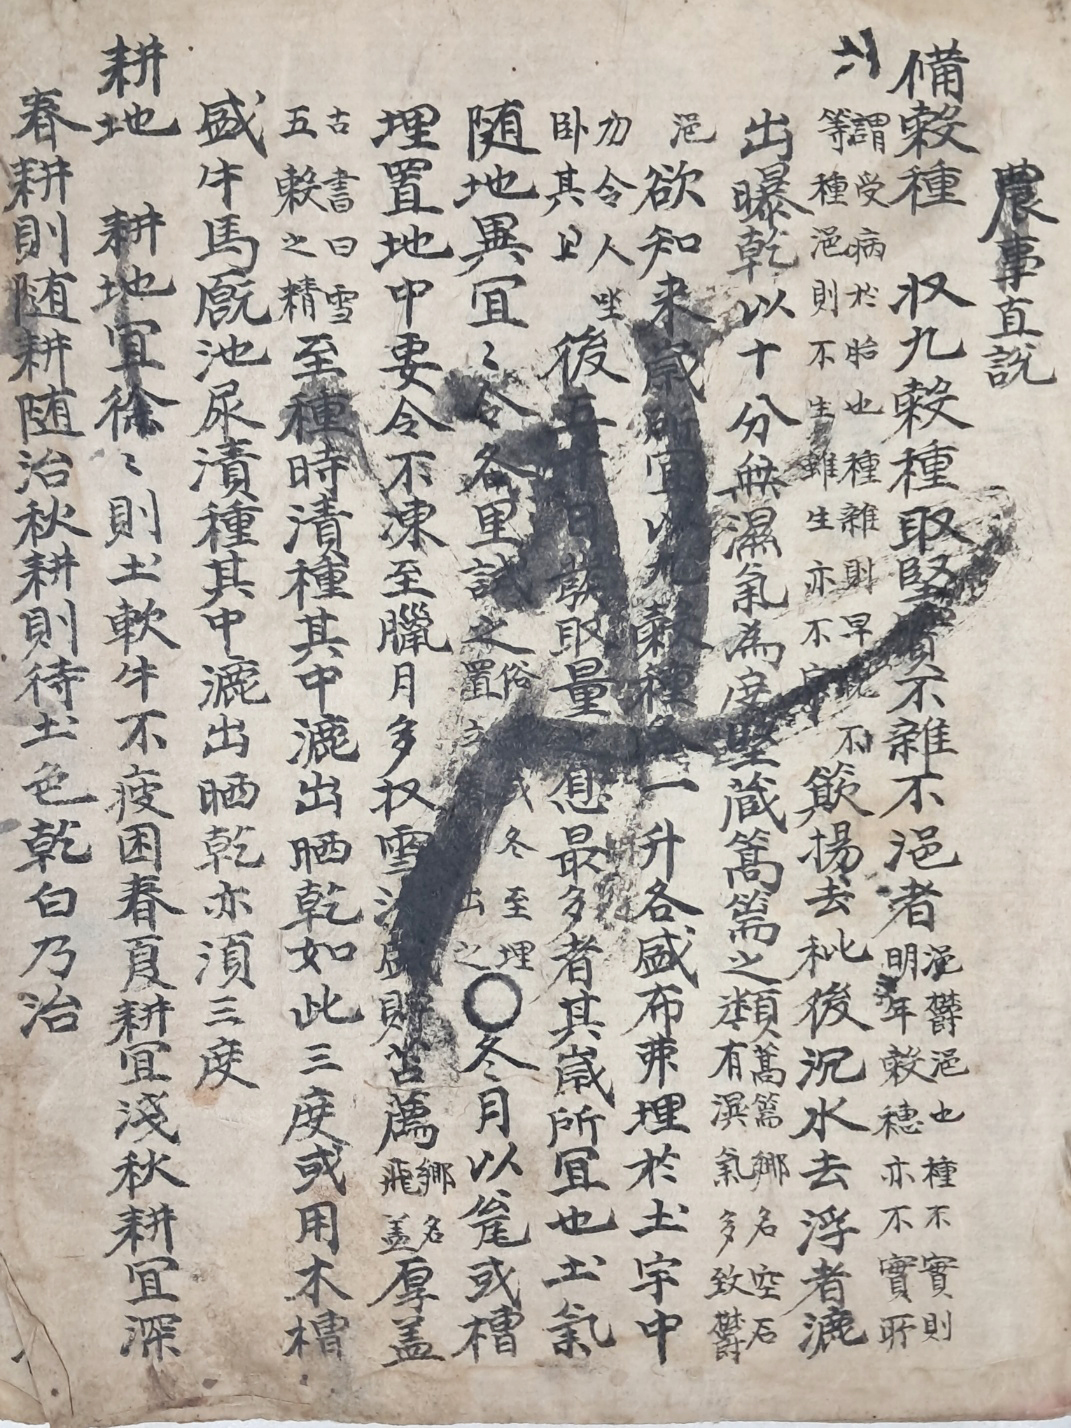 農事直說
備穀種 収九穀種取堅實不雜不浥者浥鬱浥也種不實則明年穀穗亦不實所
謂受病於胎也種雜則早晚不等種浥則不生雖生亦不 簸揚去秕後沉水去浮者漉
出曝乾以十分無濕氣為度堅蔵篙篅之類篙篅鄉名空石有濕氣多致鬱
浥 欲知来歲所宜以九穀種各一升各盛布帒埋於土宇中
勿令人坐卧其上 後五十日發取量之息最多者其歲所宜也土氣
随地異宜〻令各里試之俗置 或冬至埋之出 〇冬月以瓮或槽
埋置地中要令不凍至臘月多収雪汁盛貯苫薦鄉名飛盖厚盖
古書曰雪五穀之精至種時漬種其中漉出晒乾如此三度或用木槽
盛牛馬廐池尿漬種其中漉出晒乾亦湏三度
耕地 耕地宜徐〻則土軟牛不疲困春夏耕宜淺秋耕宜深
春耕則随耕随治秋耕則待土色乾白乃治